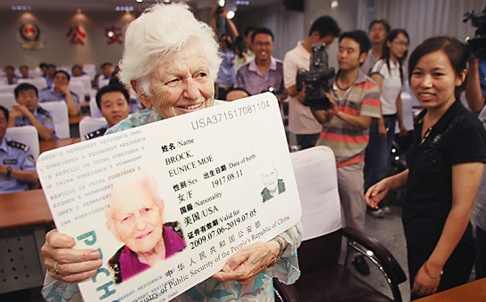 USA371517081104
姓名/Name
BROCK,
EUNICE MOE
性别/Sex 出生日期/Date of birth
女/F 1917.08.11
国籍/Nationality
美国/USA
证件有效期/Valid for
2009.07.06-2019.07.05
中华人民共和国公安部
Ministry of Public Security of the People's Republic of China